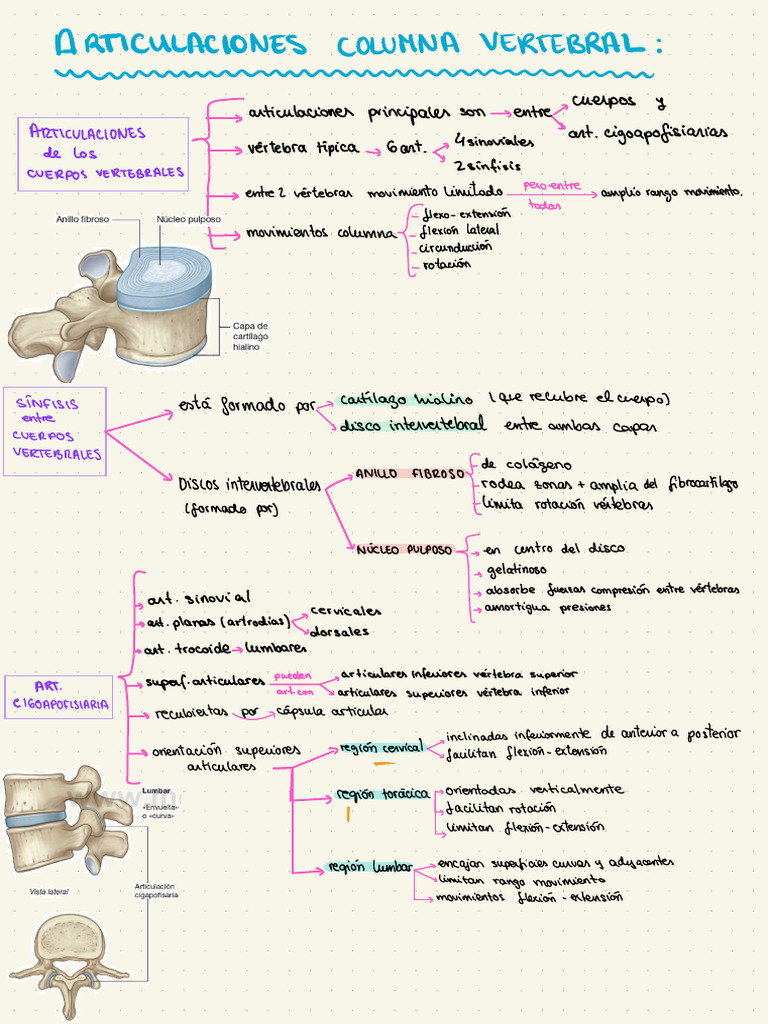 ARTICULACIONES COLUMNA VERTEBRAL:
ARTICULACIONES
de los
CUERPOS VERTEBRALES
articulaciones principales son entre cuerpos y
art. cigoapofisiarias
vértebra típica 6 art. 4 sinoviales
2 sínfisis
entre 2 vértebras movimiento limitado pero entre todas amplio rango movimiento.
movimientos columna
- flexo-extensión
- flexión lateral
- circunducción
- rotación
Anillo fibroso
Núcleo pulposo
Capa de
cartílago
hialino
SÍNFISIS
entre
CUERPOS
VERTEBRALES
está formado por cartílago hialino (que recubre el cuerpo)
disco intervertebral entre ambas capas
Discos intervertebrales
(formado por)
ANILLO FIBROSO
de colágeno
rodea zonas + amplia del fibrocartílago
limita rotación vértebras
NÚCLEO PULPOSO
en centro del disco
gelatinoso
absorbe fuerzas compresión entre vértebras
amortigua presiones
ART.
CIGOAPOFISIARIA
art. sinovial
art. planas (artrodias) cervicales
dorsales
art. trocoide lumbares
superf. articulares pueden art. con articulares inferiores vértebra superior
articulares superiores vértebra inferior
recubiertas por cápsula articular
orientación superiores
articulares
región cervical
inclinadas inferiormente de anterior a posterior
facilitan flexión-extensión
región torácica
orientadas verticalmente
facilitan rotación
limitan flexión-extensión
región lumbar
encajan superficies curvas y adyacentes
limitan rango movimiento
movimientos flexión-extensión
Lumbar
«Envuelta»
o «curva»
Vista lateral
Articulación
cigapofisaria